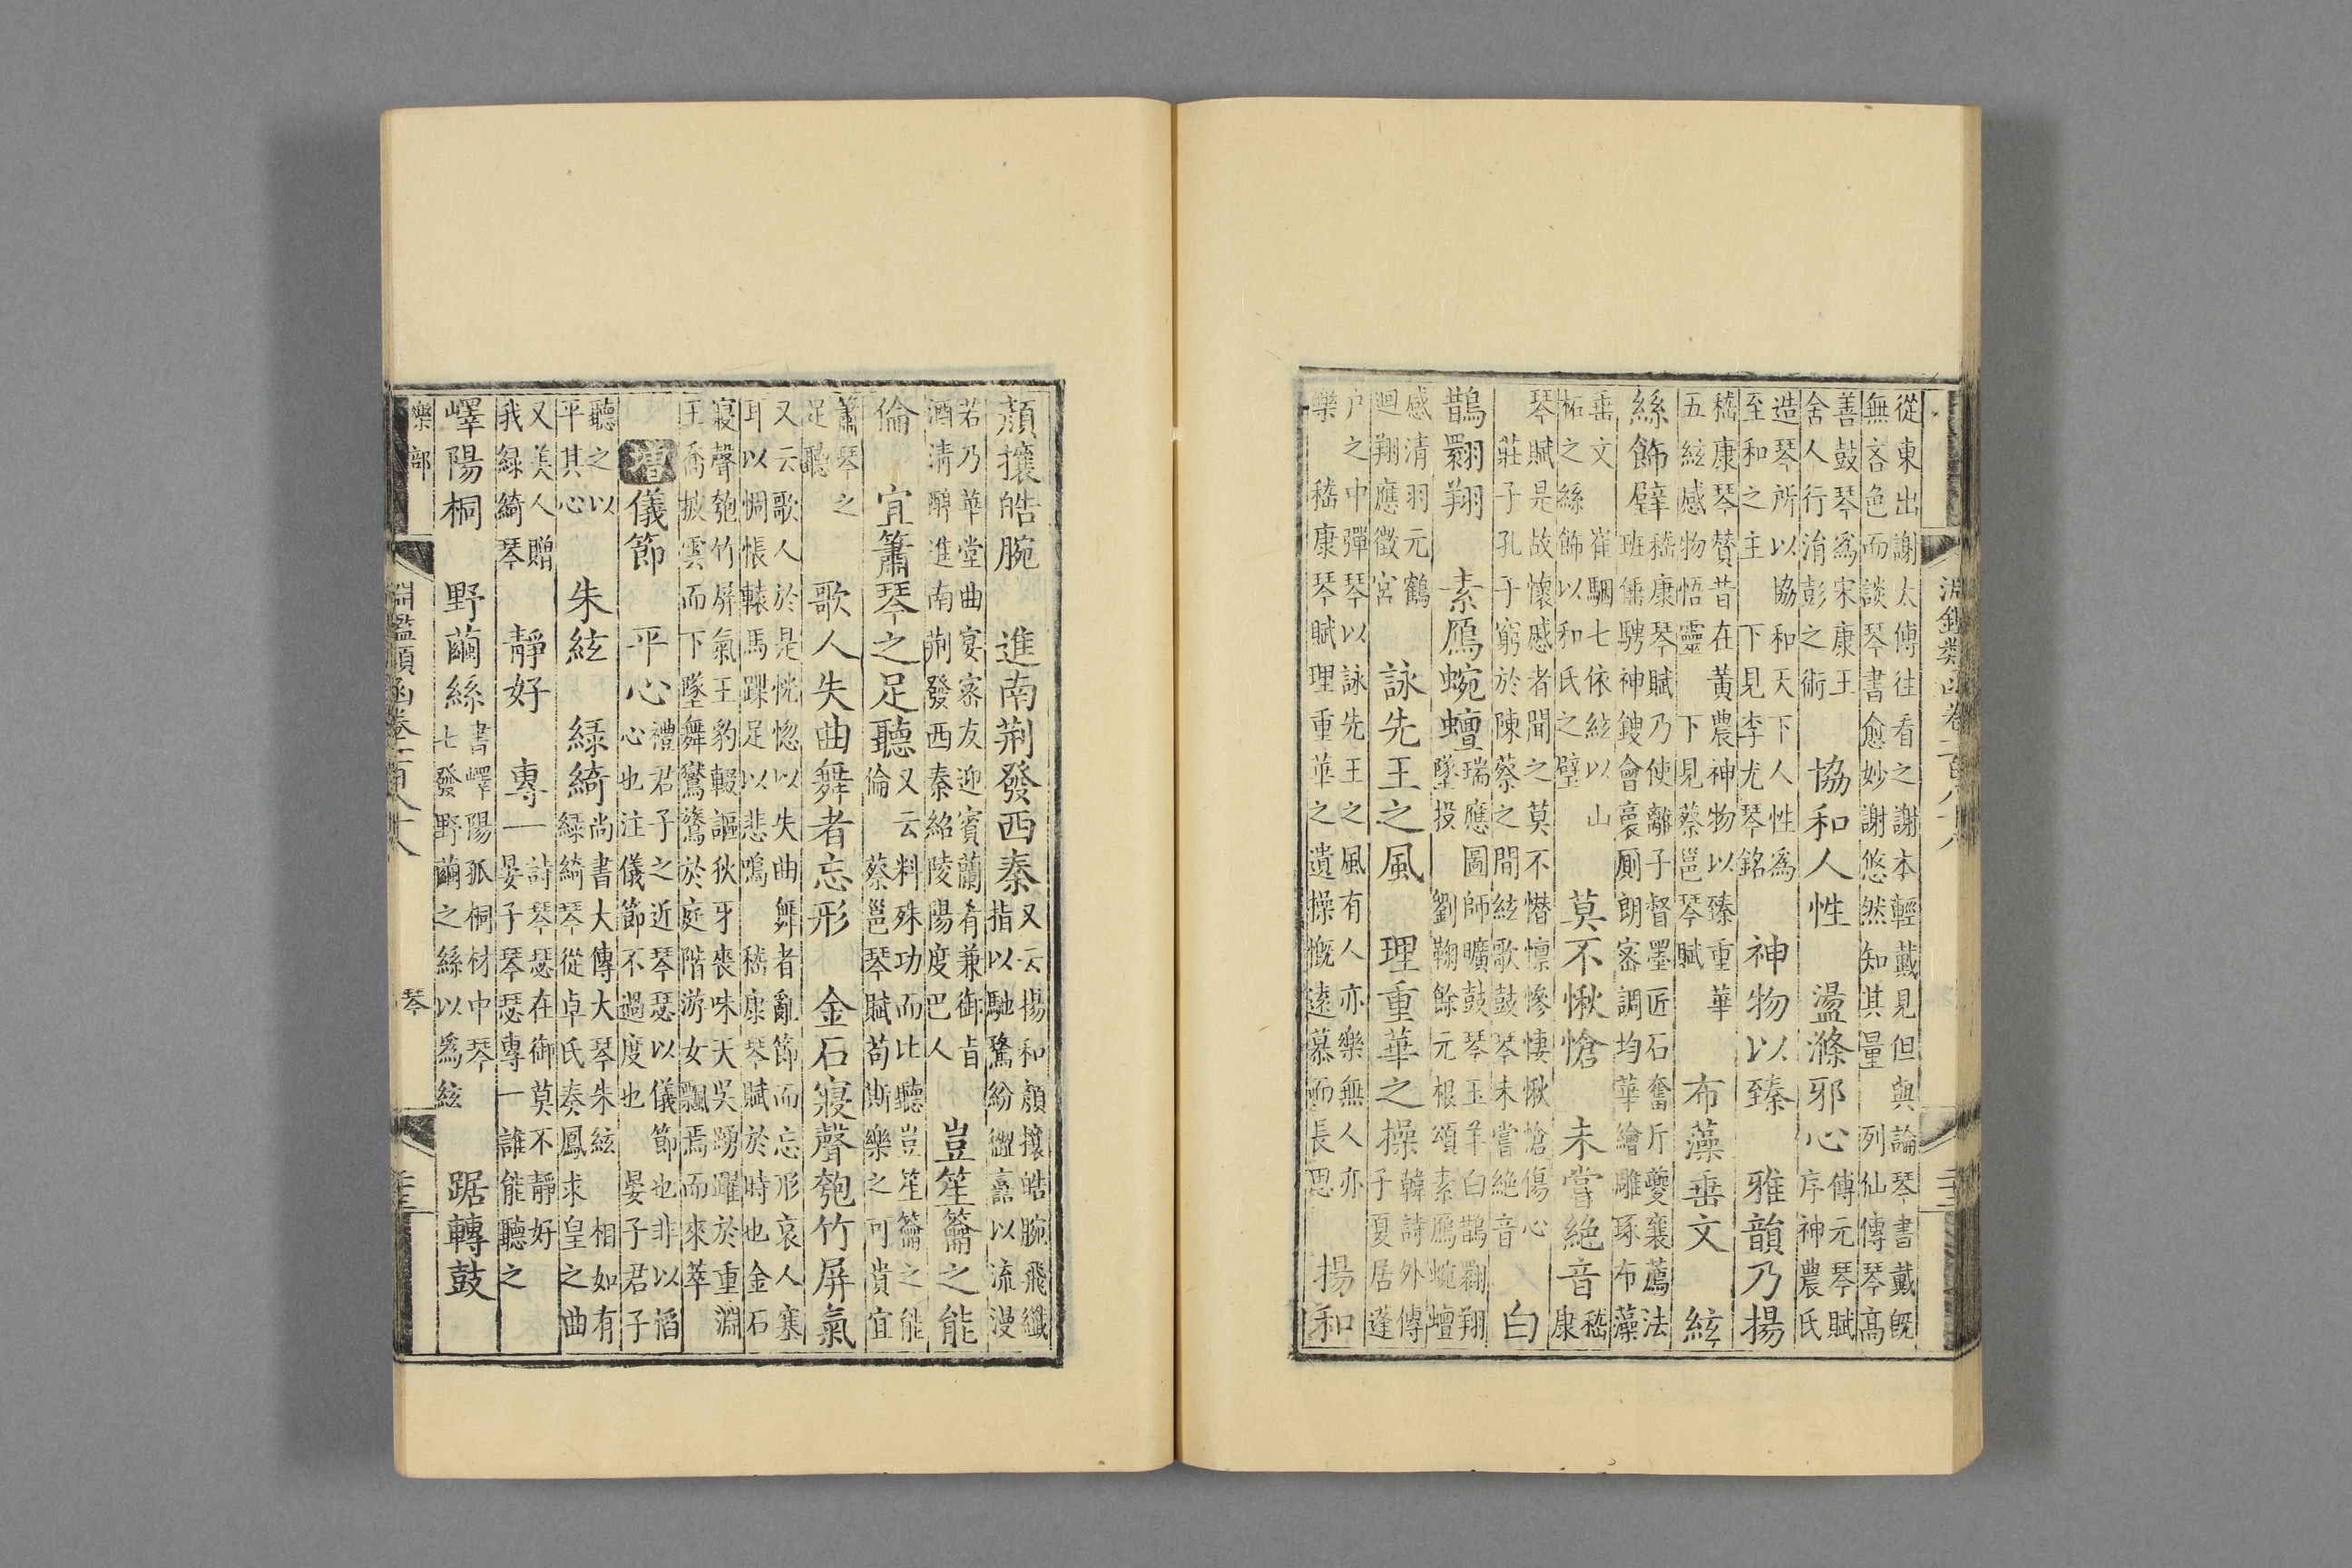 淵鑑類函卷一百八十八
從東出謝太傅往看之謝本輕戴見但與論琴書戴既
無吝色而談琴書愈妙謝悠然知其量 列仙傳琴高
善鼓琴爲宋康王
舍人行涓彭之術
協和人性 盪滌邪心
傅元琴賦
序神農氏
造琴所以協和天下人性爲
至和之主 下見李尤琴銘
神物以臻 雅韻乃揚
嵇康琴贊昔在黃農神物以臻重華
五絃感物悟靈 下見蔡邕琴賦
布藻垂文 絃
絲飾璧
嵇康琴賦乃使離子督墨匠石奮斤夔襄薦法
班倕騁神鎪會裛厠朗密調均華繪雕琢布藻
垂文 崔駰七依絃以山
柘之絲飾以和氏之璧
莫不愀愴 未嘗絕音
嵇
康
琴賦是故懷慼者聞之莫不憯懍慘悽愀愴傷心
莊子孔子窮於陳蔡之間絃歌鼓琴未嘗絕音
白
鵲翾翔 素鴈蜿蟺
瑞應圖師曠鼓琴玉羊白鵲翾翔
墜投 劉鞠餘元根頌素鴈蜿蟺
感清羽元鶴
迴翔應徵宮
詠先王之風 理重華之操
韓詩外傳
子夏居蓬
户之中彈琴以詠先王之風有人亦樂無人亦
樂 嵇康琴賦理重華之遺操慨遠慕而長思
揚和
顏攘皓腕 進南荆發西秦
又云揚和顏攘皓腕飛纖
指以馳騖紛㒊譶以流漫
若乃華堂曲宴密友迎賓蘭肴兼御旨
酒清醇進南荆發西秦紹陵陽度巴人
豈笙籥之能
倫 宜簫琴之足聽
又云料殊功而比聽豈笙籥之能
倫 蔡邕琴賦苟斯樂之可貴宜
簫琴之
足聽
歌人失曲舞者忘形 金石寢聲匏竹屏氣
又云歌人於是恍惚以失曲舞者亂節而忘形哀人塞
耳以惆悵轅馬蹀足以悲鳴 嵇康琴賦於時也金石
寢聲匏竹屏氣王豹輟謳狄牙喪味天吳踴躍於重淵
王喬披雲而下墜舞鸑鷟於庭階游女飄焉而來萃
增 儀節 平心
禮君子之近琴瑟以儀節也非以慆
心也注儀節不過度也 晏子君子
聽之以
平其心
朱絃 緑綺
尚書大傳大琴朱絃 相如有
緑綺琴從卓氏奏鳳求皇之曲
又美人贈
我緑綺琴
靜好 專一
詩琴瑟在御莫不靜好
晏子琴瑟專一誰能聽之
嶧陽桐 野繭絲
書嶧陽孤桐材中琴
七發野繭之絲以爲絃
踞轉鼓
樂部
淵鑑類函卷一百八十八 琴